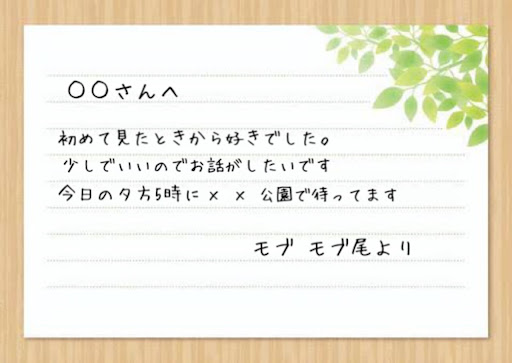 〇〇さんへ
初めて見たときから好きでした。
少しでいいのでお話がしたいです
今日の夕方5時に × × 公園で待ってます
モブ モブ尾より